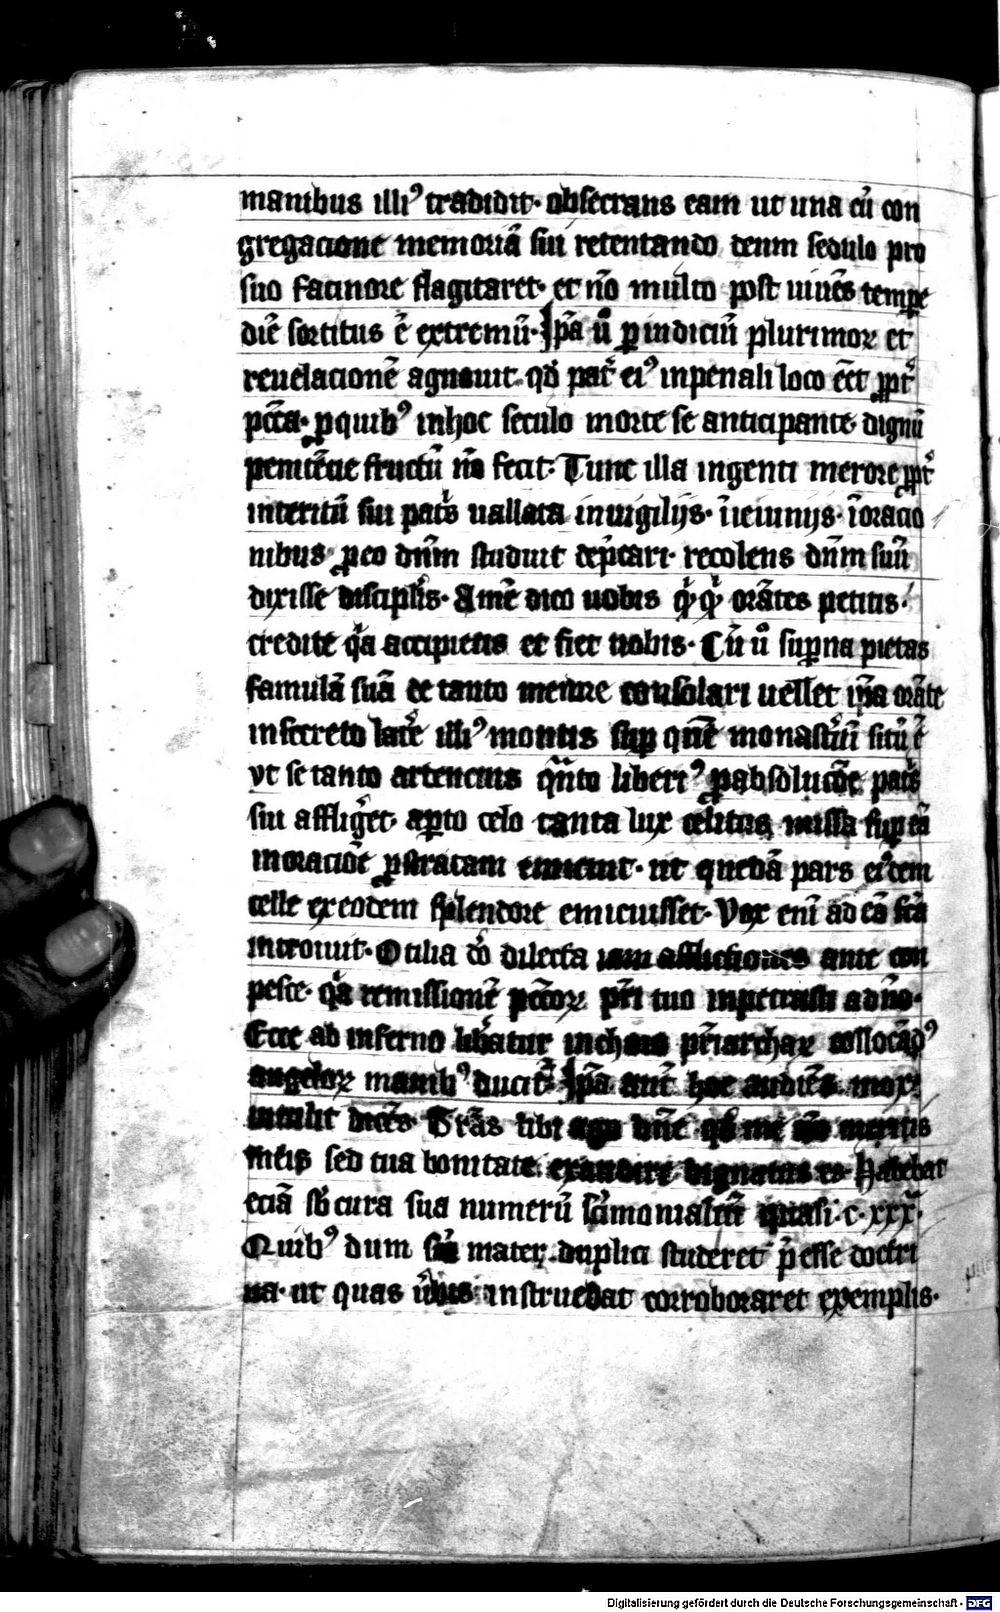 manibus illiꝰ tradidit· obsecrans eam ut una cū con
gregacione memoriā sui retentando deum sedulo pro
suo facinore flagitaret· et nō multo post uiuēs tempe
diē sortitus ē extremū· Ip̄a uͦ ꝑ indiciū plurimoꝝ et
reuelacionē agnouit· qd̓ pat̓ eiꝰ in penali loco eēt ꝓpt̓
pcc̄a· ꝓ quibꝰ in hoc seculo morte se anticipante· dignū
penitēcie fructū nō fecit· Tunc illa ingenti merore ꝓpt̓
interitū sui pat̓s uallata in uigilijs· ī ieiunijs· ī oracio
nibus ꝓ eo dn̄m studuit dep̄cari· recolens dn̄m suū
dixisse discipl̓is· Amē dico uobis q̓q̓ orātes petitis·
credite q̓a accipietis et fiet uobis· Cū uͦ sup̱na pietas
famulā suā de tanto merore consolari uellet ip̄a orāte
in secreto lat̓e illiꝰ montis sup̱ quē monast̓iū sitū ē
vt se tanto artencius qͣnto liberiꝰ ꝓ absolucōe pat̓s
sui afflig̓et· aꝑto celo tanta lux celitus missa sup̱ eā
in oracioē ꝓstratam emicuit· ut quedā pars eiꝰdem
celle ex eodem splendore emicuisset· Vox enī ad eā fc̄a
intonuit· Otilia dō dilecta iam afflictiones ante con
pesce· q̓a remissionē pcc̄oꝝ pr̄i tuo inpetrasti a dn̄o·
Ecce ab inferno lib̓atur in choro pr̄iarchaꝝ collocādꝰ
angeloꝝ manibꝰ ducit̓· Ip̄a aut̄ hoc audiēs mox
intulit dicēs· Gr̄as tibi ago dn̄e qd̓ me nō meritis
meis sed tua bonitate exaudire dignatus es· Habebat
eciā sb̓ cura sua numerū sc̄imonialiū quasi·c·xxx·
Quibꝰ dum mater duplici studeret p̄esse doctri
na· ut quas ūbis instruebat corroboraret exemplis·
Digitalisierung gefördert durch die Deutsche Forschungsgemeinschaft · DFG